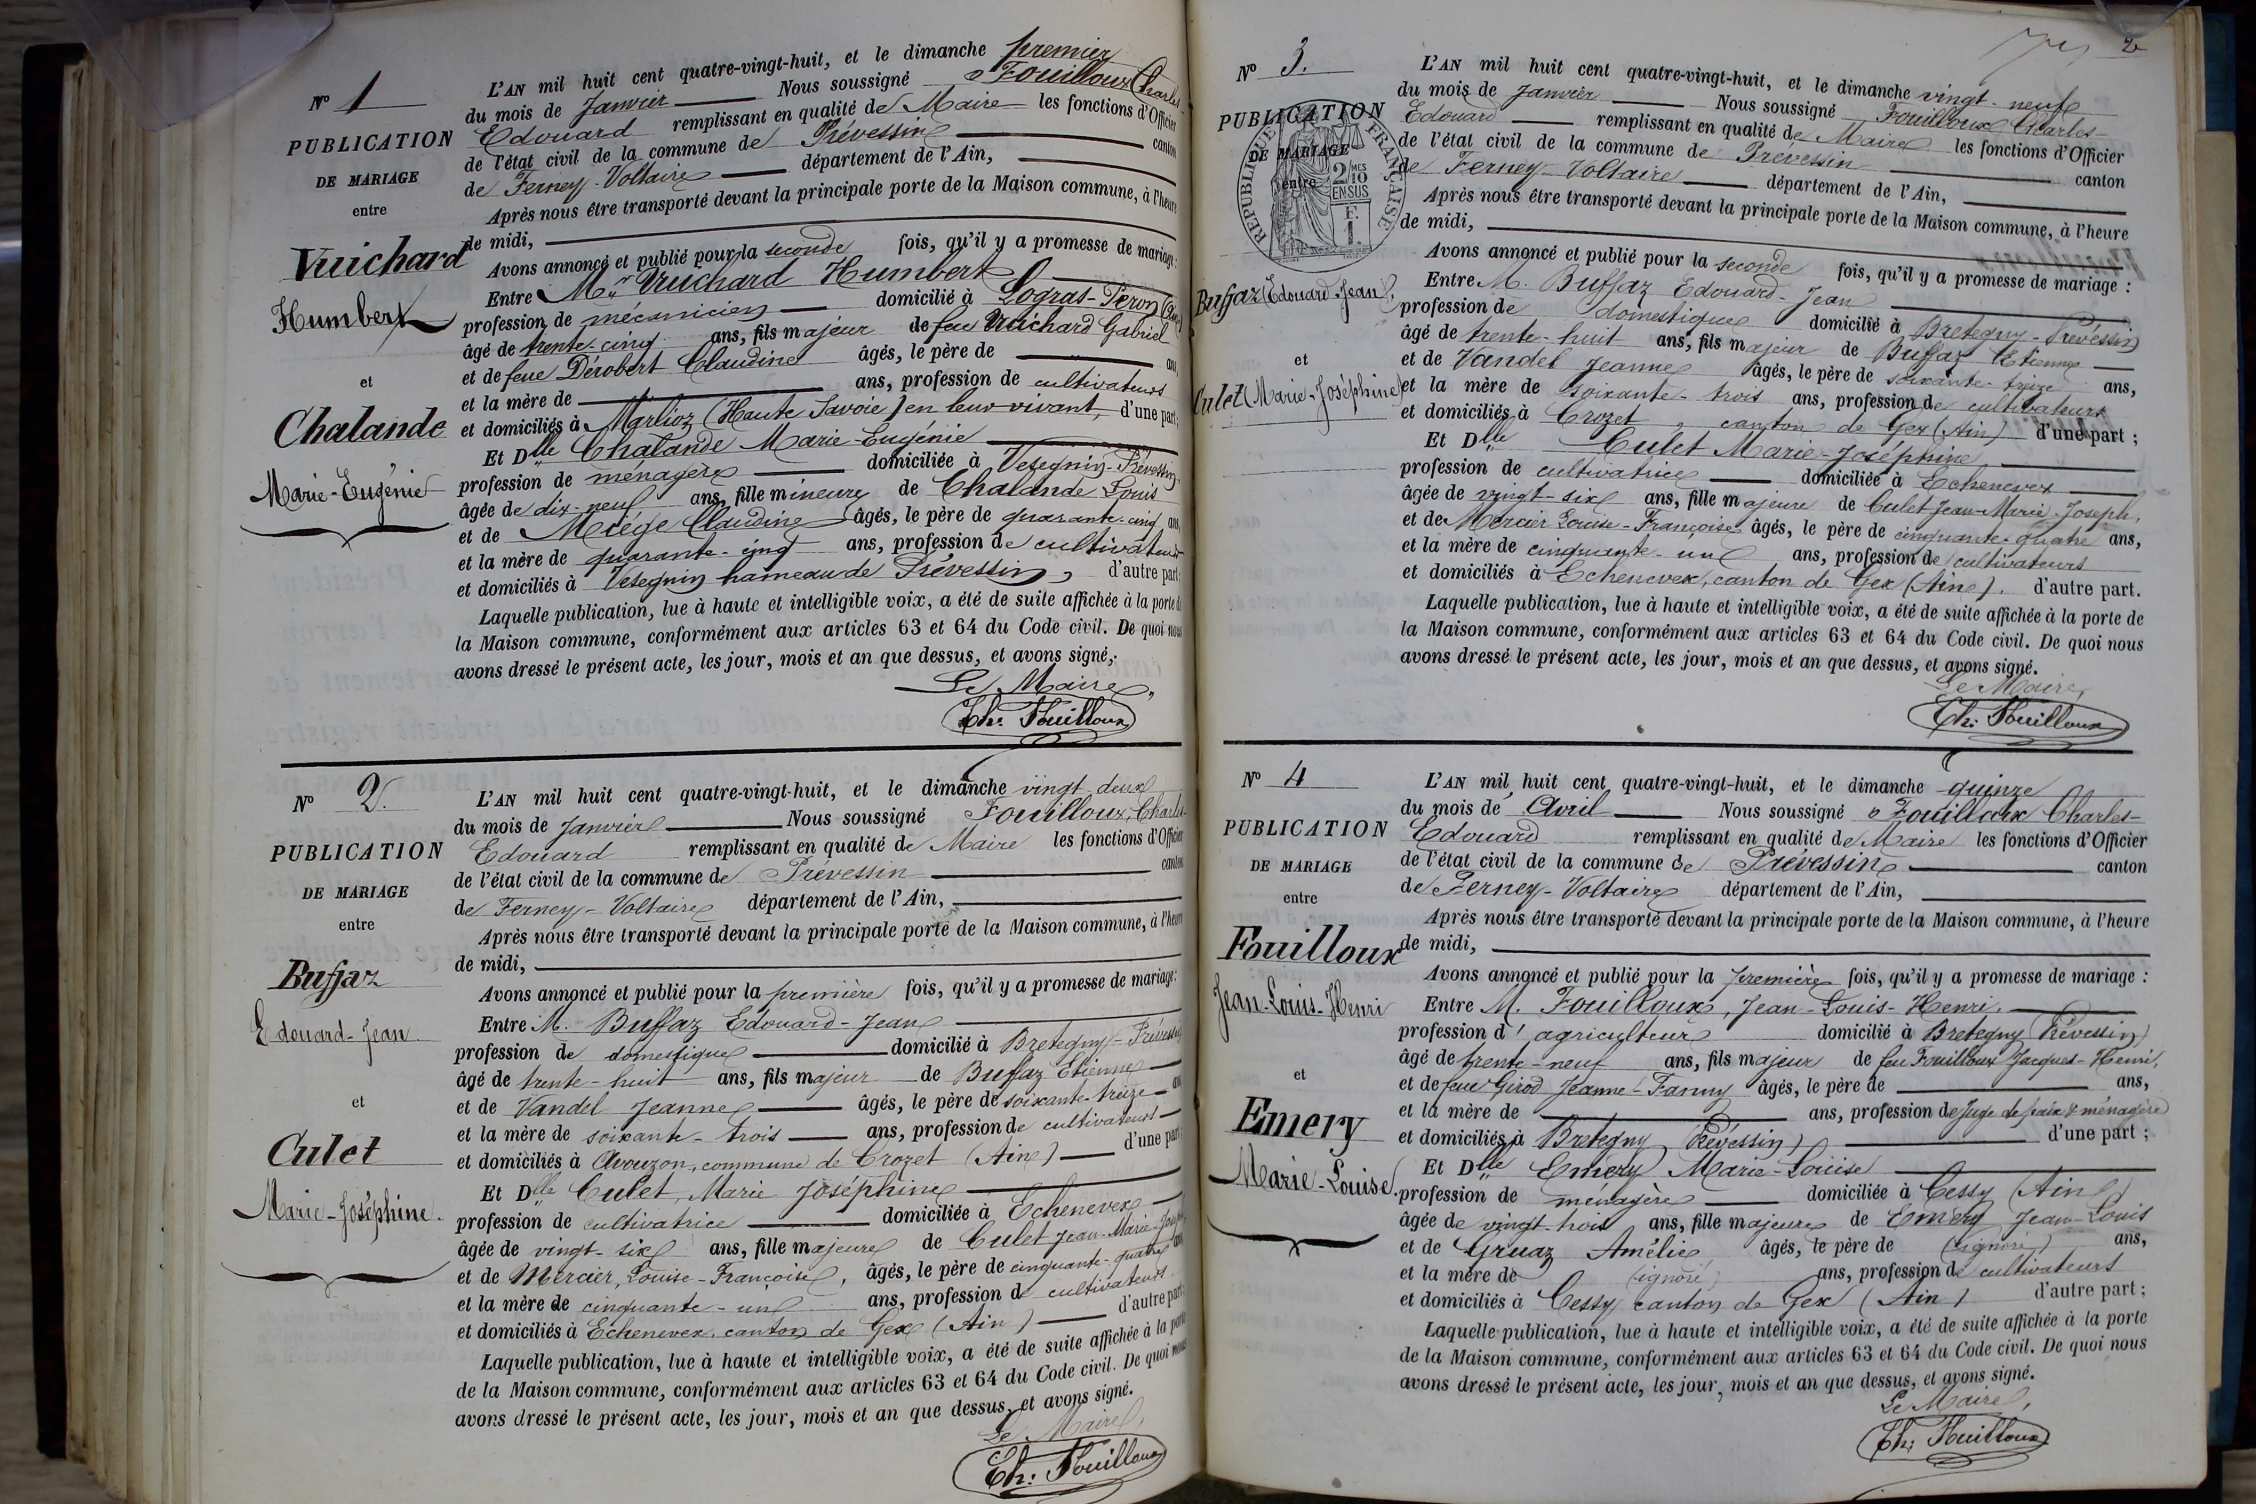 N° 1
PUBLICATION
DE MARIAGE
entre
Vuichard
Humbert
et
Chalande
Marie-Eugénie
L'AN mil huit cent quatre-vingt-huit, et le dimanche premier
du mois de Janvier Nous soussigné Fouilloux Charles-
Edouard remplissant en qualité de Maire les fonctions d'Officier
de l'état civil de la commune de Prévessin canton
de Ferney-Voltaire département de l'Ain,
Après nous être transporté devant la principale porte de la Maison commune, à l'heure
de midi,
Avons annoncé et publié pour la seconde fois, qu'il y a promesse de mariage:
Entre Mr Vuichard Humbert
profession de mécanicien domicilié à Logras-Péron (Ain)
âgé de trente-cinq ans, fils majeur de feu Vuichard Gabriel
et de feue Dérobert Claudine âgés, le père de ans,
et la mère de ans, profession de cultivateurs
et domiciliés à Marlioz (Haute Savoie) en leur vivant, d'une part;
Et Dlle Chalande Marie-Eugénie
profession de ménagère domiciliée à Vesegnin-Prévessin
âgée de dix-neuf ans, fille mineure de Chalande Louis
et de Miége Claudine âgés, le père de quarante-cinq ans
et la mère de quarante-cinq ans, profession de cultivateurs
et domiciliés à Vésegnin hameau de Prévessin, d'autre part;
Laquelle publication, lue à haute et intelligible voix, a été de suite affichée à la porte de
la Maison commune, conformément aux articles 63 et 64 du Code civil. De quoi nous
avons dressé le présent acte, les jour, mois et an que dessus, et avons signé,
Le Maire,
Ch: Fouilloux
N° 2.
PUBLICATION
DE MARIAGE
entre
Buffaz
Edouard-Jean
et
Culet
Marie-Joséphine.
L'AN mil huit cent quatre-vingt-huit, et le dimanche vingt deux
du mois de Janvier Nous soussigné Fouilloux, Charles-
Edouard remplissant en qualité de Maire les fonctions d'Officier
de l'état civil de la commune de Prévessin canton
de Ferney-Voltaire département de l'Ain,
Après nous être transporté devant la principale porte de la Maison commune, à l'heure
de midi,
Avons annoncé et publié pour la première fois, qu'il y a promesse de mariage:
Entre M. Buffaz Edouard-Jean
profession de domestique domicilié à Bretegny-Prévessin
âgé de trente-huit ans, fils majeur de Buffaz Etienne
et de Vandel Jeanne âgés, le père de soixante-treize ans
et la mère de soixante-trois ans, profession de cultivateurs
et domiciliés à Avouzon, commune de Crozet (Ain) d'une part
Et Dlle Culet, Marie Joséphine
profession de cultivatrice domiciliée à Echenevex
âgée de vingt-six ans, fille majeure de Culet Jean-Marie-Joseph
et de Mercier, Louise-Françoise, âgés, le père de cinquante-quatre ans
et la mère de cinquante-un ans, profession de cultivateurs
et domiciliés à Echenevex, canton de Gex (Ain) d'autre part
Laquelle publication, lue à haute et intelligible voix, a été de suite affichée à la porte
de la Maison commune, conformément aux articles 63 et 64 du Code civil. De quoi nous
avons dressé le présent acte, les jour, mois et an que dessus, et avons signé.
Le Maire,
Ch: Fouilloux
2
N° 3.
PUBLICATION
DE MARIAGE
entre
RÉPUBLIQUE FRANÇAISE
2 MES
10
EN SUS
F.
1.
Buffaz (Edouard Jean),
et
Culet (Marie-Joséphine)
L'AN mil huit cent quatre-vingt-huit, et le dimanche vingt-neuf
du mois de Janvier Nous soussigné Fouilloux Charles-
Edouard remplissant en qualité de Maire les fonctions d'Officier
de l'état civil de la commune de Prévessin canton
de Ferney-Voltaire département de l'Ain,
Après nous être transporté devant la principale porte de la Maison commune, à l'heure
de midi,
Avons annoncé et publié pour la seconde fois, qu'il y a promesse de mariage:
Entre M. Buffaz Edouard-Jean
profession de domestique domicilié à Bretegny-Prévessin
âgé de trente-huit ans, fils majeur de Buffaz Etienne
et de Vandel Jeanne âgés, le père de soixante-treize ans,
et la mère de soixante-trois ans, profession de cultivateurs
et domiciliés à Crozet, canton de Gex (Ain) d'une part;
Et Dlle Culet Marie-Joséphine
profession de cultivatrice domiciliée à Echenevex
âgée de vingt-six ans, fille majeure de Culet Jean-Marie-Joseph,
et de Mercier Louise-Françoise âgés, le père de cinquante-quatre ans,
et la mère de cinquante-un ans, profession de cultivateurs
et domiciliés à Echenevex, canton de Gex (Ain). d'autre part.
Laquelle publication, lue à haute et intelligible voix, a été de suite affichée à la porte de
la Maison commune, conformément aux articles 63 et 64 du Code civil. De quoi nous
avons dressé le présent acte, les jour, mois et an que dessus, et avons signé.
Le Maire,
Ch: Fouilloux
N° 4
PUBLICATION
DE MARIAGE
entre
Fouilloux
Jean-Louis-Henri
et
Emery
Marie-Louise.
L'AN mil huit cent quatre-vingt-huit, et le dimanche quinze
du mois de Avril Nous soussigné Fouilloux Charles-
Edouard remplissant en qualité de Maire les fonctions d'Officier
de l'état civil de la commune de Prévessin canton
de Ferney-Voltaire département de l'Ain,
Après nous être transporté devant la principale porte de la Maison commune, à l'heure
de midi,
Avons annoncé et publié pour la première fois, qu'il y a promesse de mariage:
Entre M. Fouilloux, Jean-Louis-Henri.
profession d'agriculteur domicilié à Bretegny (Prévessin)
âgé de trente-neuf ans, fils majeur de feu Fouilloux Jacques-Henri,
et de feue Girod Jeanne-Fanny âgés, le père de ans,
et la mère de ans, profession de Juge de paix & ménagère
et domiciliés à Bretegny (Prévessin) d'une part;
Et Dlle Emery Marie-Louise
profession de ménagère domiciliée à Cessy (Ain)
âgée de vingt-trois ans, fille majeure de Emery Jean-Louis
et de Gruaz Amélie âgés, le père de (ignoré) ans,
et la mère de (ignoré) ans, profession de cultivateurs
et domiciliés à Cessy canton de Gex (Ain) d'autre part;
Laquelle publication, lue à haute et intelligible voix, a été de suite affichée à la porte
de la Maison commune, conformément aux articles 63 et 64 du Code civil. De quoi nous
avons dressé le présent acte, les jour, mois et an que dessus, et avons signé.
Le Maire,
Ch: Fouilloux